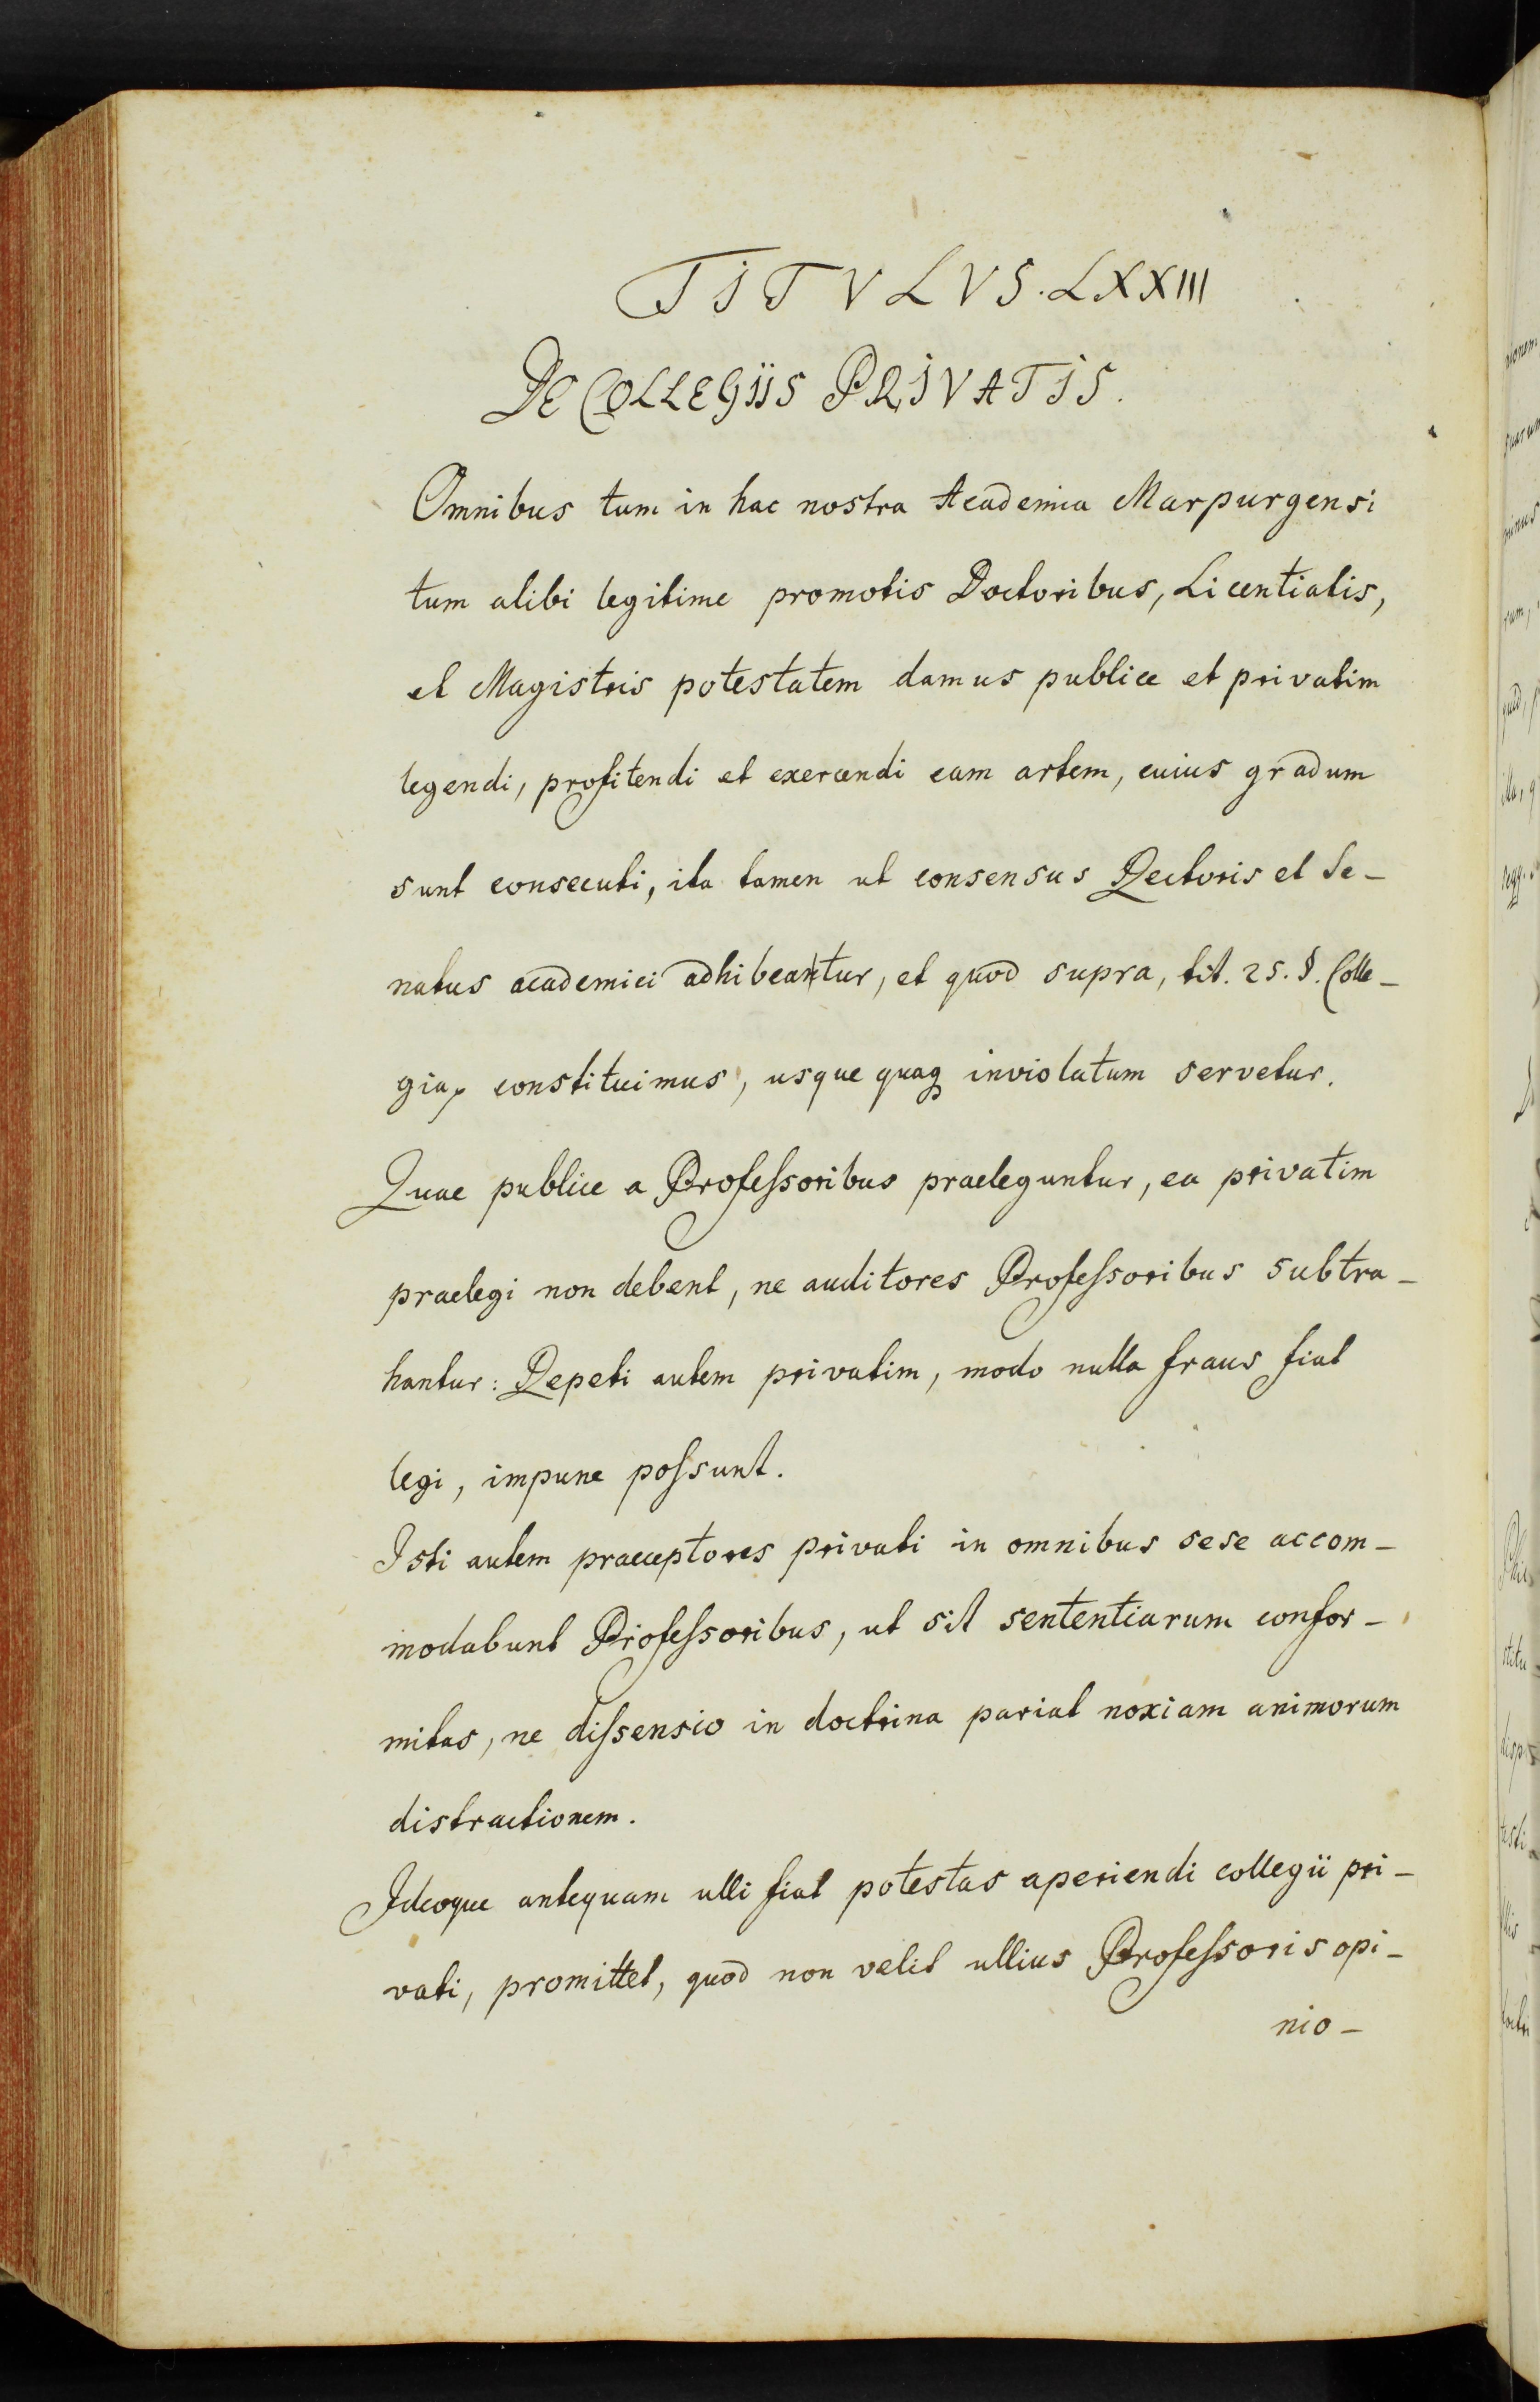 TITVLVS. LXXIII
DE COLLEGIIS PRIVATIS.
Omnibus tum in hac nostra Academia Marpurgensi
tum alibi legitime promotis Doctoribus, Licentiatis,
et Magistris potestatem damus publice et privatim
legendi, profitendi et exercendi eam artem, cuius gradum
sunt consecuti, ita tamen ut consensus Rectoris et Se-
natus academici adhibeatur, et quod supra, tit. 25. §. Colle-
gia, constituimus, usque quaq inviolatum servetur.
Quae publice a Profeſsoribus praeleguntur, ea privatim
praelegi non debent, ne auditores Profeſsoribus subtra-
hantur: Repeti autem privatim, modo nulla fraus fiat
legi, impune poſsunt.
Isti autem praeceptores privati in omnibus sese accom-
modabunt Profeſsoribus, ut sit sententiarum confor-
mitas, ne diſsensio in doctrina pariat noxiam animorum
distractionem.
Ideoque antequam ulli fiat potestas aperiendi collegii pri-
vati, promittet, quod non velit ullius Profeſsoris opi-
nio-